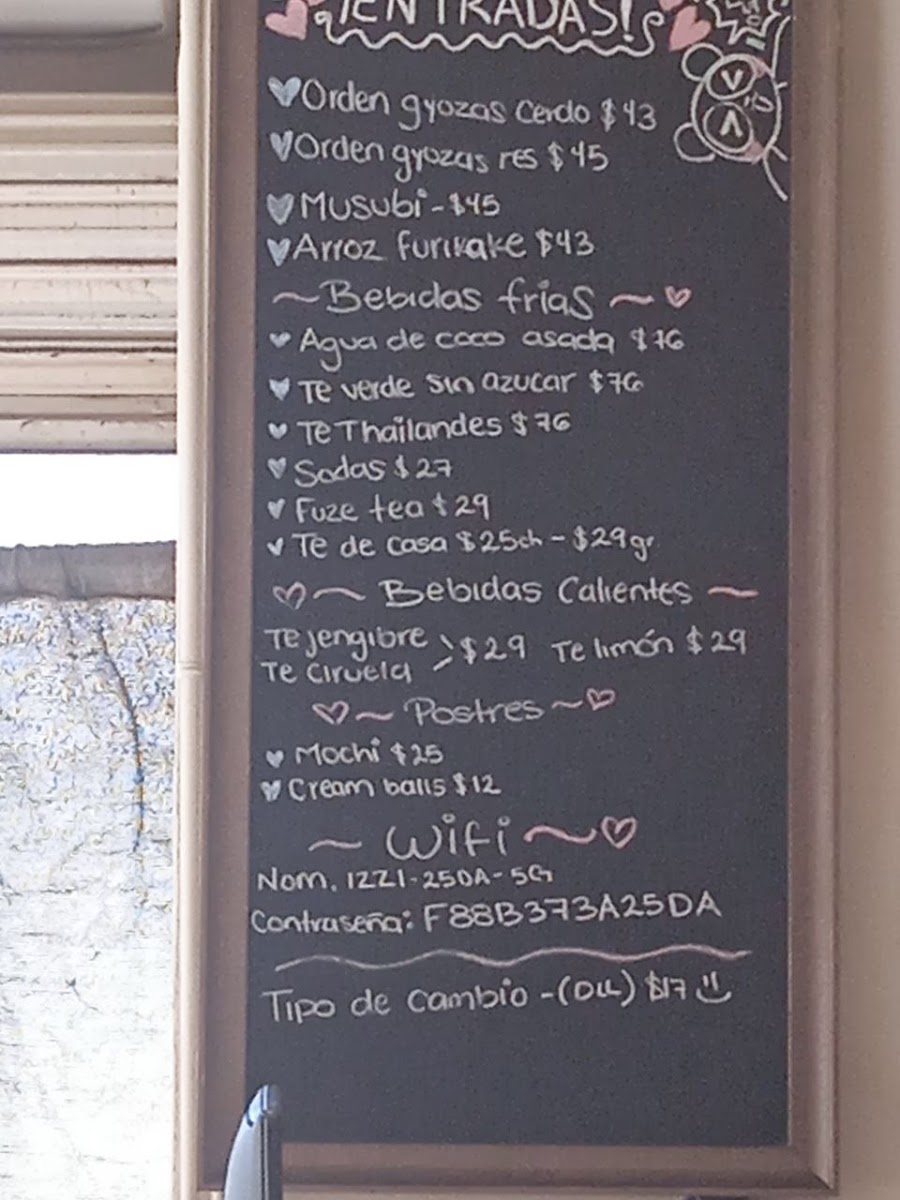 ¡ENTRADAS!
Orden gyozas cerdo $43
Orden gyozas res $45
Musubi - $45
Arroz furikake $43
~ Bebidas frias ~
Agua de coco asada $76
Te verde sin azucar $76
Te Thailandes $76
Sodas $27
Fuze tea $29
Te de casa $25ch - $29gr
~ Bebidas Calientes ~
Te jengibre > $29 Te limón $29
Te ciruela
~ Postres ~
Mochi $25
Cream balls $12
~ Wifi ~
Nom. IZZI-25DA-5G
Contraseña: F88B373A25DA
Tipo de cambio - (DLL) $17